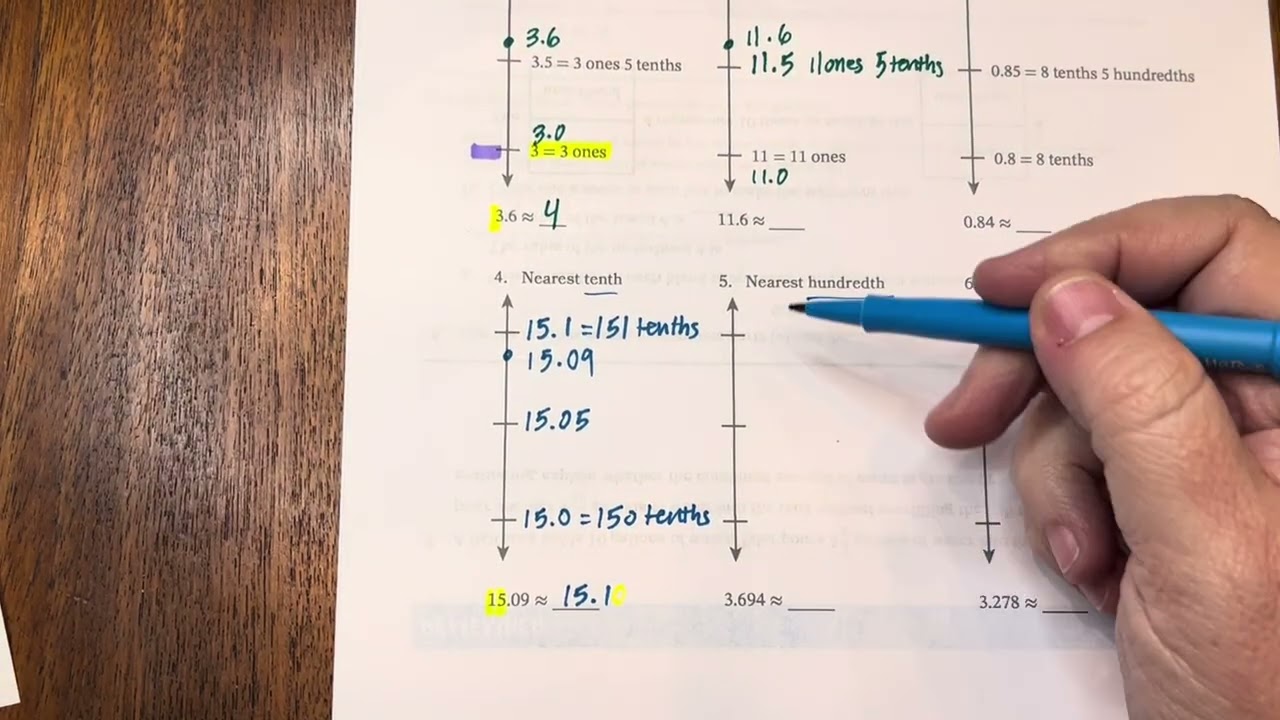 3.6
3.5 = 3 ones 5 tenths
3.0
3 = 3 ones
3.6 ≈ 4
11.6
11.5 11ones 5tenths
11 = 11 ones
11.0
11.6 ≈ ___
0.85 = 8 tenths 5 hundredths
0.8 = 8 tenths
0.84 ≈ ___
4. Nearest tenth
15.1 = 151 tenths
15.09
15.05
15.0 = 150 tenths
15.09 ≈ 15.10
5. Nearest hundredth
3.694 ≈ ___
6
3.278 ≈ ___